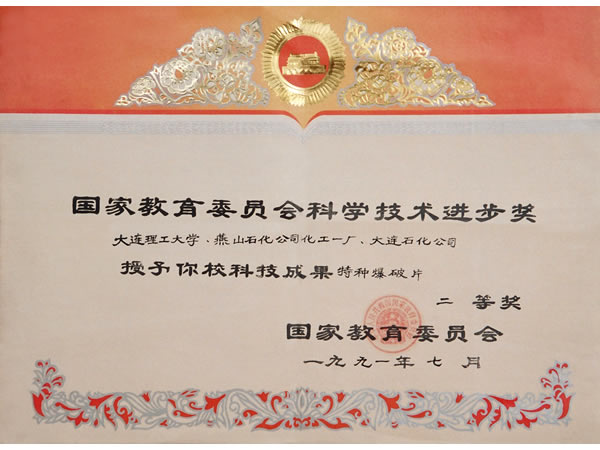 国家教育委员会科学技术进步奖
大连理工大学、燕山石化公司化工一厂、大连石化公司
授予你校科技成果特种爆破片
二等奖
国家教育委员会
一九九一年七月